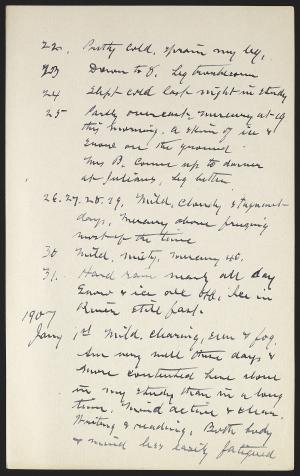 22. Pretty cold, sprain my leg,
23 Down to O. Leg troublesome
24 Slept cold last night in study
25 Partly overcast, mercury at 19
this morning. a skim of ice &
snow on the ground
Mrs B. Came up to dinner
at Julians, leg better.
26. 27. 28. 29, Mild, Cloudy & stagnant
days, Mercury above freezing
most of the time
30 Mild, misty, mercury 40.
31. Hard rain nearly all day
Snow & ice all off, ice in
River still fast.
1907
Jany 1st Mild, clearing, sun & fog.
Am very well these days &
more contented here alone
in my study than in a long
time. Mind active & clear.
Writing & reading, Both body
& mind less easily fatigued